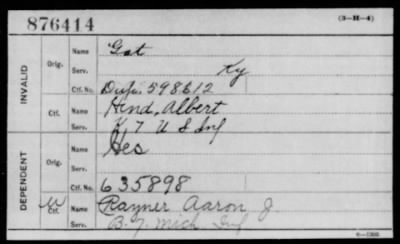 876414
(3-H-4)
INVALID
Orig.
Name
Gat
Serv.
Ky
Ctf. No.
Dup. 598612
Ctf.
Name
Hind, Albert
Serv.
K, 7 U S Inf
DEPENDENT
Orig.
Name
Hes
Serv.
Ctf. No.
635898
W
Ctf.
Name
Rayner Aaron J.
Serv.
B. 7. Mich Inf
6-1300